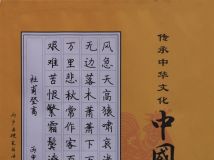 中國
传承中华文化
风急天高猿啸哀
无边落木萧萧下
万里悲秋常作客
艰难苦恨繁霜鬓
杜甫登高